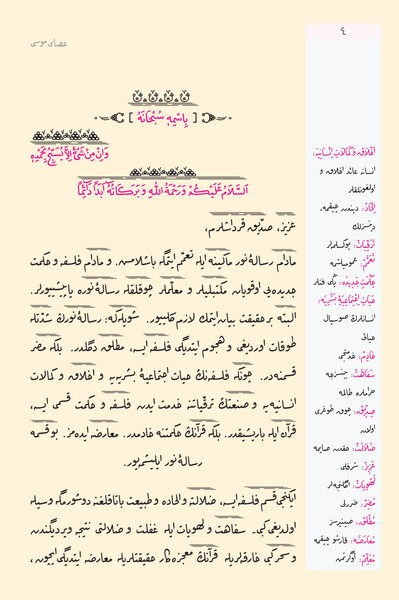 ٤
عصای موسی
[ بِاسْمِهِ سُبْحَانَهُ ]
وَاِنْ مِنْ شَىْءٍ اِلَّا يُسَبِّحُ بِحَمْدِهِ
اَلسَّلَامُ عَلَيْكُمْ وَرَحْمَةُ اللّٰهِ وَبَرَكَاتُهُ اَبَدًا دَائِمًا
عزيز، صديق قرداشلرم،
مادام رسالۀ نور ماكينه ايله تعمّم ايتمگه باشلامش. و مادام فلسفه و حكمت
جديده‌يى اوقويان مكتبليلر و معلملر چوقلقله رسالۀ نوره ياپيشيورلر.
البته بر حقيقت بيان ايتمك لازم كلييور. شويله‌كه: رسالۀ نورڭ شدتله
طوقات اورديغى و هجوم ايتديگى فلسفه ايسه، مطلق دگلدر. بلكه مضر
قسمنه‌در. چونكه فلسفه‌نڭ حيات اجتماعيۀ بشريه‌يه و اخلاق و كمالات
انسانيه‌يه و صنعتڭ ترقياتنه خدمت ايدن فلسفه و حكمت قسمى ايسه،
قرآن ايله باريشيقدر. بلكه قرآنڭ حكمتنه خادمدر. معارضه ايده‌مز. بو قسمه
رسالۀ نور ايليشمييور.
ايكنجى قسم فلسفه ايسه، ضلالته و الحاده و طبيعت باتاقلغنه دوشورمگه وسيله
اولديغى كبى، سفاهت و لهويات ايله غفلت و ضلالتى نتيجه ويرديگندن
و سحر كبى خارقه‌لريله قرآنڭ معجزه‌كار حقيقتلريله معارضه ايتديگى ايچون،
اخلاق و كمالات انسانيه:
انسانه عائد اخلاق و
اولغونلقلر
الحاد: ديندن چيقمه،
دينسزلك
ترقيات: يوكسلمه‌لر
تعمّم: عموميلشمه
حكمت جديده: يڭى فنلر
حيات اجتماعيۀ بشريه:
انسانلرڭ صوسيال
حياتى
خادم: خدمتجى
سفاهت: بينسزجه
حرامه طالمه
صديق: چوق طوغرى
اولان
ضلالت: حقدن صاپمه
عزيز: شرفلى
لهويات: اگلنجه‌لر
مضر: ضررلى
مطلق: صينيرسز
معارضه: قارشو چيقمه
معلم: اوگرتمن